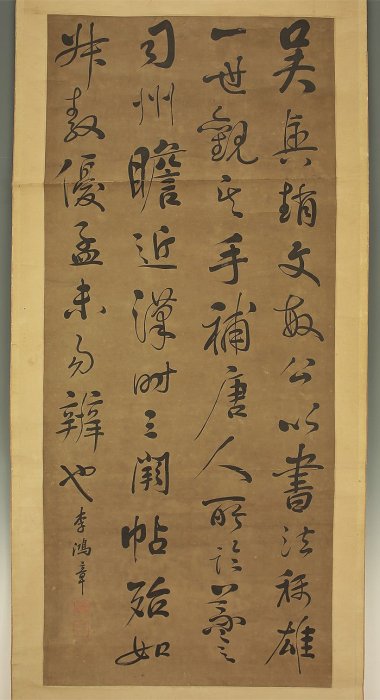 吴興趙文敏公以書法称雄
一世觀其手補唐人所臨羲之
司州瞻近漢時三闕帖殆如
叔敖優孟未易辨也
李鴻章